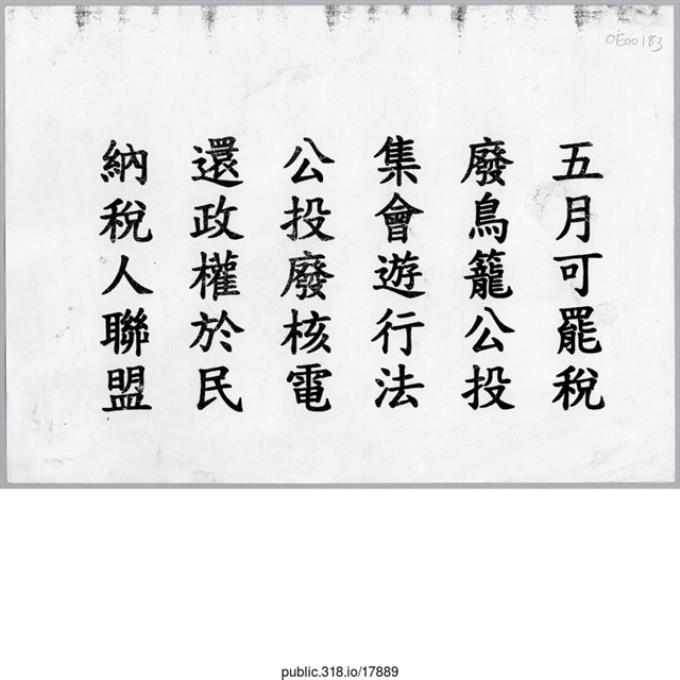 OE00183
五月可罷稅
廢鳥籠公投
集會遊行法
公投廢核電
還政權於民
納稅人聯盟
public.318.io/17889